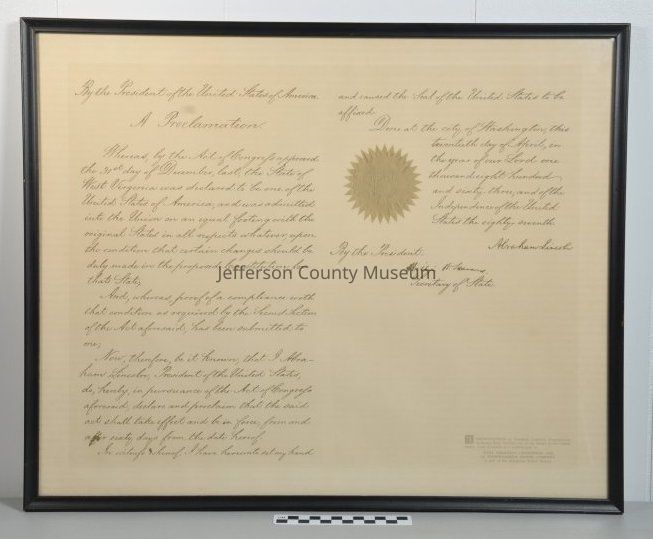 By the President of the United States of America.
A Proclamation.
Whereas, by the Act of Congress approved
the 31st day of December, last, the State of
West Virginia was declared to be one of the
United States of America, and was admitted
into the Union on an equal footing with the
original States in all respects whatever, upon
the condition that certain changes should be
duly made in the proposed Constitution for
that State;
And, whereas, proof of a compliance with
that condition as required by the Second Section
of the Act aforesaid, has been submitted to
me;
Now, therefore, be it known, that I Abra-
ham Lincoln, President of the United States,
do, hereby, in pursuance of the Act of Congress
aforesaid, declare and proclaim that the said
act shall take effect and be in force, from and
after sixty days from the date hereof.
In witness whereof, I have hereunto set my hand
and caused the Seal of the United States to be
affixed.
Done at the city of Washington, this
twentieth day of April, in
the year of our Lord one
thousand eight hundred
and sixty-three, and of the
Independence of the United
States the eighty-seventh.
Abraham Lincoln
By the President:
Secretary of State
Jefferson County Museum